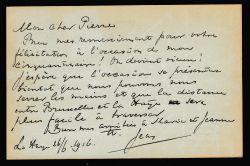 Mon cher Pierre
Bien mes remerciments pour votre
félicitation à l'occasion de mon
cinquantenaire! On devient vieux!
J'espère que l'occasion se présentera
bientôt que nous pouvons nous
serrer les mains et que la distance
entre Bruxelles et la Haye sera
plus facile à traverser
Bien mes amitiés à Marie et Jeanne
Jean
La Haye 26/6 1916.